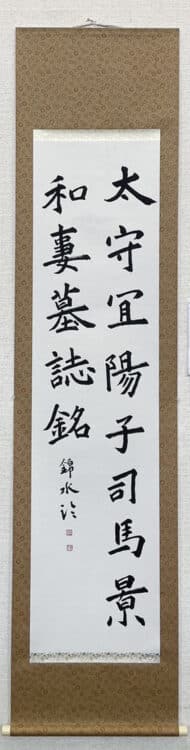 太守宜陽子司馬景
和妻墓誌銘
錦水臨